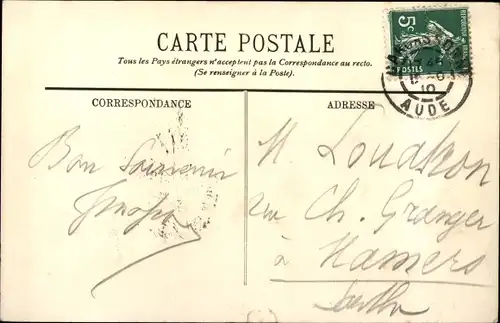 CARTE POSTALE
Tous les Pays étrangers n'acceptent pas la Correspondance au recto.
(Se renseigner à la Poste).
5c
POSTES
10
AUDE
CORRESPONDANCE
ADRESSE
Bon Souvenir
M.
Ch. Granger
à Mamers
Sarthe